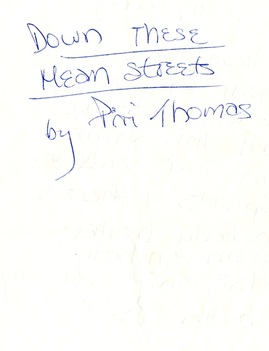 Down These
Mean Streets
by Piri Thomas